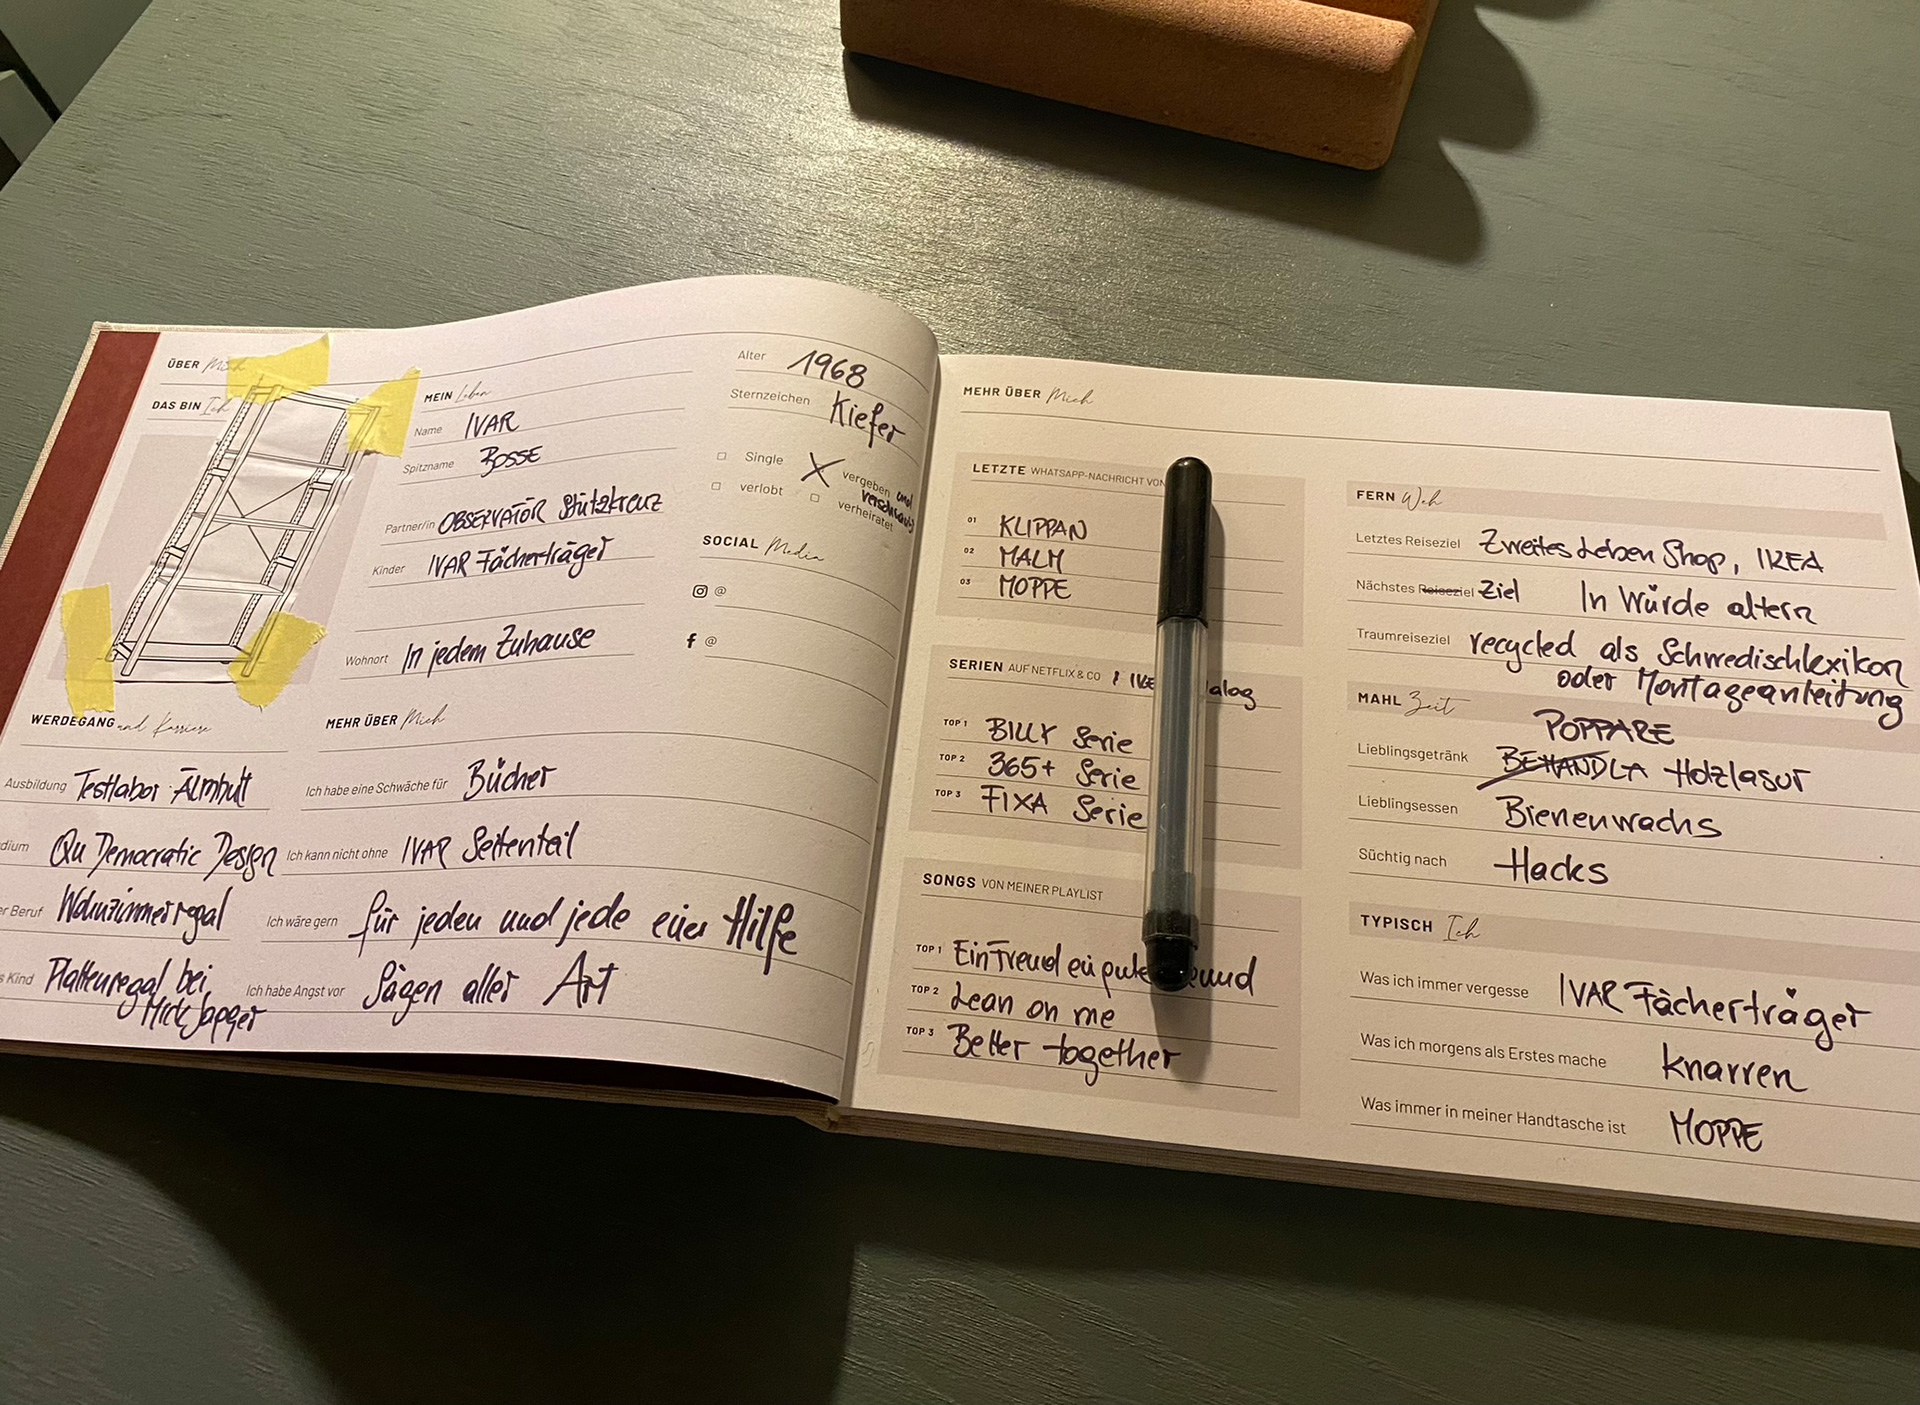 ÜBER Mich
DAS BIN Ich
MEIN Leben
Name IVAR
Spitzname BOSSE
Partner/in OBSERVATÖR Stützkreuz
Kinder IVAR Fächerträger
Wohnort In jedem Zuhause
Alter 1968
Sternzeichen Kiefer
Single
vergeben und
verlobt
verheiratet
SOCIAL Media
@
f @
WERDEGANG und Karriere
Ausbildung Testlabor Älmhult
dium Qu Democratic Design
er Beruf Wohnzimmerregal
s Kind Plattenregal bei
Mick Jagger
MEHR ÜBER Mich
Ich habe eine Schwäche für Bücher
Ich kann nicht ohne IVAR Seitenteil
Ich wäre gern für jeden und jede eine Hilfe
Ich habe Angst vor Sägen aller Art
MEHR ÜBER Mich
LETZTE WHATSAPP-NACHRICHT VON
01 KLIPPAN
02 MALM
03 MOPPE
SERIEN AUF NETFLIX & CO
TOP 1 BILLY Serie
TOP 2 365+ Serie
TOP 3 FIXA Serie
SONGS VON MEINER PLAYLIST
TOP 1 Ein Freund ein gute eund
TOP 2 Lean on me
TOP 3 Better together
FERN Weh
Letztes Reiseziel Zweites Leben Shop, IKEA
Nächstes Reiseziel Ziel In Würde altern
Traumreiseziel recycled als Schwedischlexikon
oder Montageanleitung
MAHL Zeit
POPPARE
Lieblingsgetränk BEHANDLA Holzlasur
Lieblingsessen Bienenwachs
Süchtig nach Hacks
TYPISCH Ich
Was ich immer vergesse IVAR Fächerträger
Was ich morgens als Erstes mache knarren
Was immer in meiner Handtasche ist MOPPE